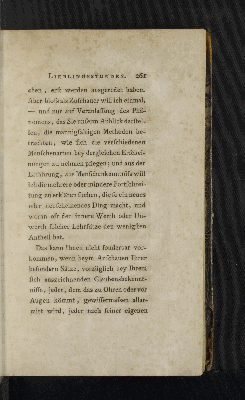 LIEBLINGSSTUNDEN. 261
eben, erst werden ausgeredet haben.
Aber bloss als Zuschauer will ich einmal,
— und nur auf Veranlassung des Phä-
nomens, das Sie unserm Anblick darstel-
len, die mannigfaltigen Methoden be-
trachten, wie sich die verschiedenen
Menschenarten bey dergleichen Erschei-
nungen zu nehmen pflegen; und aus der
Erfahrung, aus Menschenkenntniss will
ich die mehrere oder mindere Fortschrei-
tung zu erklären suchen, die so ein neues
oder neuscheinendes Ding macht, und
woran oft der innere Werth oder Un-
werth solcher Lehrsätze den wenigsten
Antheil hat.
Das kann Ihnen nicht sonderbar vor-
kommen, wenn beym Anschauen Ihrer
besondern Sätze, vorzüglich bey Ihrem
sich auszeichnenden Glaubensbekennt-
nisse, jeder, dem das zu Ohren oder vor
Augen kömmt, gewissermassen allar-
mirt wird, jeder nach seiner eigenen